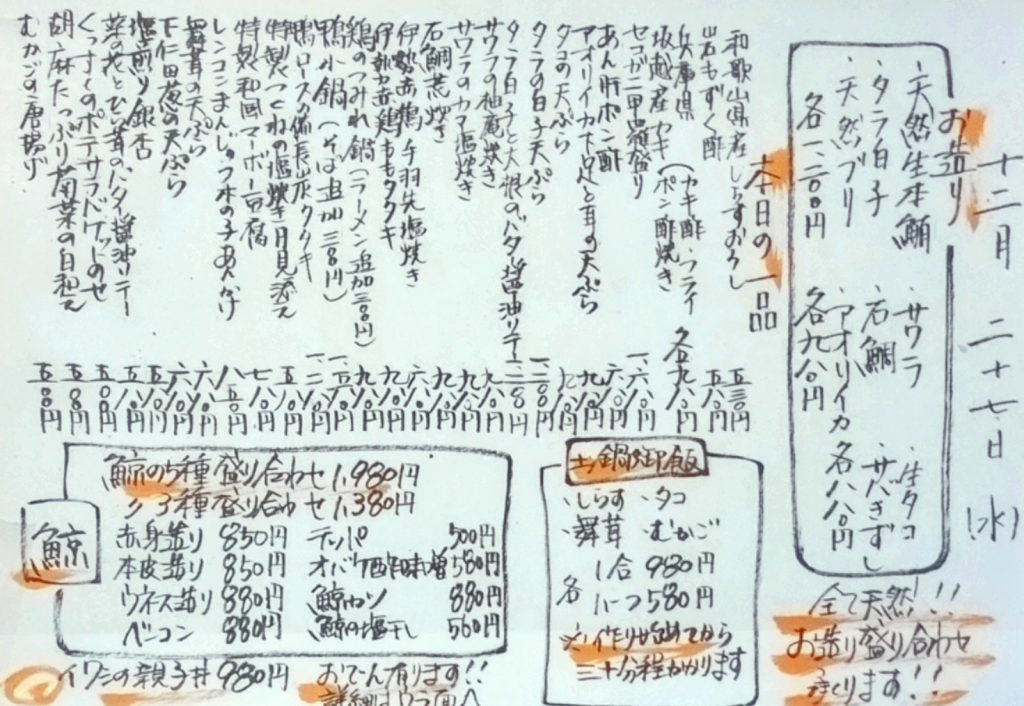 十二月 二十七日 (水)
お造り
・天然生本鮪
・タラ白子
・天然ブリ
各一、二八〇円
・サワラ
・石鯛
・アオリイカ
各九八〇円
・生タコ
・サバきずし
各八八〇円
全て天然!!
お造り盛り合わせ
承ります!!
本日の一品
和歌山県産しらすおろし 五三〇円
岩もずく酢 五八〇円
兵庫県
坂越産カキ(カキ酢・フライ
ポン酢焼き) 各九八〇円
セコガニ甲羅盛り
あん肝ポン酢
アオリイカ下足と耳の天ぷら
タコの天ぷら
タラの白子天ぷら
タラ白子と大根のバター醤油ソテー
サワラの柚庵焼き
サワラのカマ塩焼き
石鯛荒炊き
伊勢赤鶏手羽先塩焼き
伊勢赤鶏ももタタキ
鶏のつみれ鍋(ラーメン追加三〇〇円)
鴨小鍋(そば追加三〇〇円)
鴨ロースの備長炭タタキ
特製つくねの塩焼き月見添え
特製和風マーボー豆腐
レンコンまんじゅう木の子あんかけ
舞茸の天ぷら
下仁田葱の天ぷら
塩煎り銀杏
菜の花とひら茸のバター醤油ソテー
くっすてのポテサラバゲットのせ
胡麻たっぷり菊菜の白和え
むかごの唐揚げ
土鍋御飯
・しらす ・タコ
・舞茸 ・むかご
各 1合 980円
ハーフ 580円
※作り始めてから
三十分程かかります
鯨
鯨の5種盛り合わせ 1,980円
〃 3種盛り合わせ 1,380円
赤身造り 850円 テッパ 500円
本皮造り 850円 オバケ酢味噌 580円
ウネス造り 880円 鯨カツ 880円
ベーコン 880円 鯨の塩干し 560円
イワシの親子丼 980円
おでん有ります!!
詳細はウラ面へ